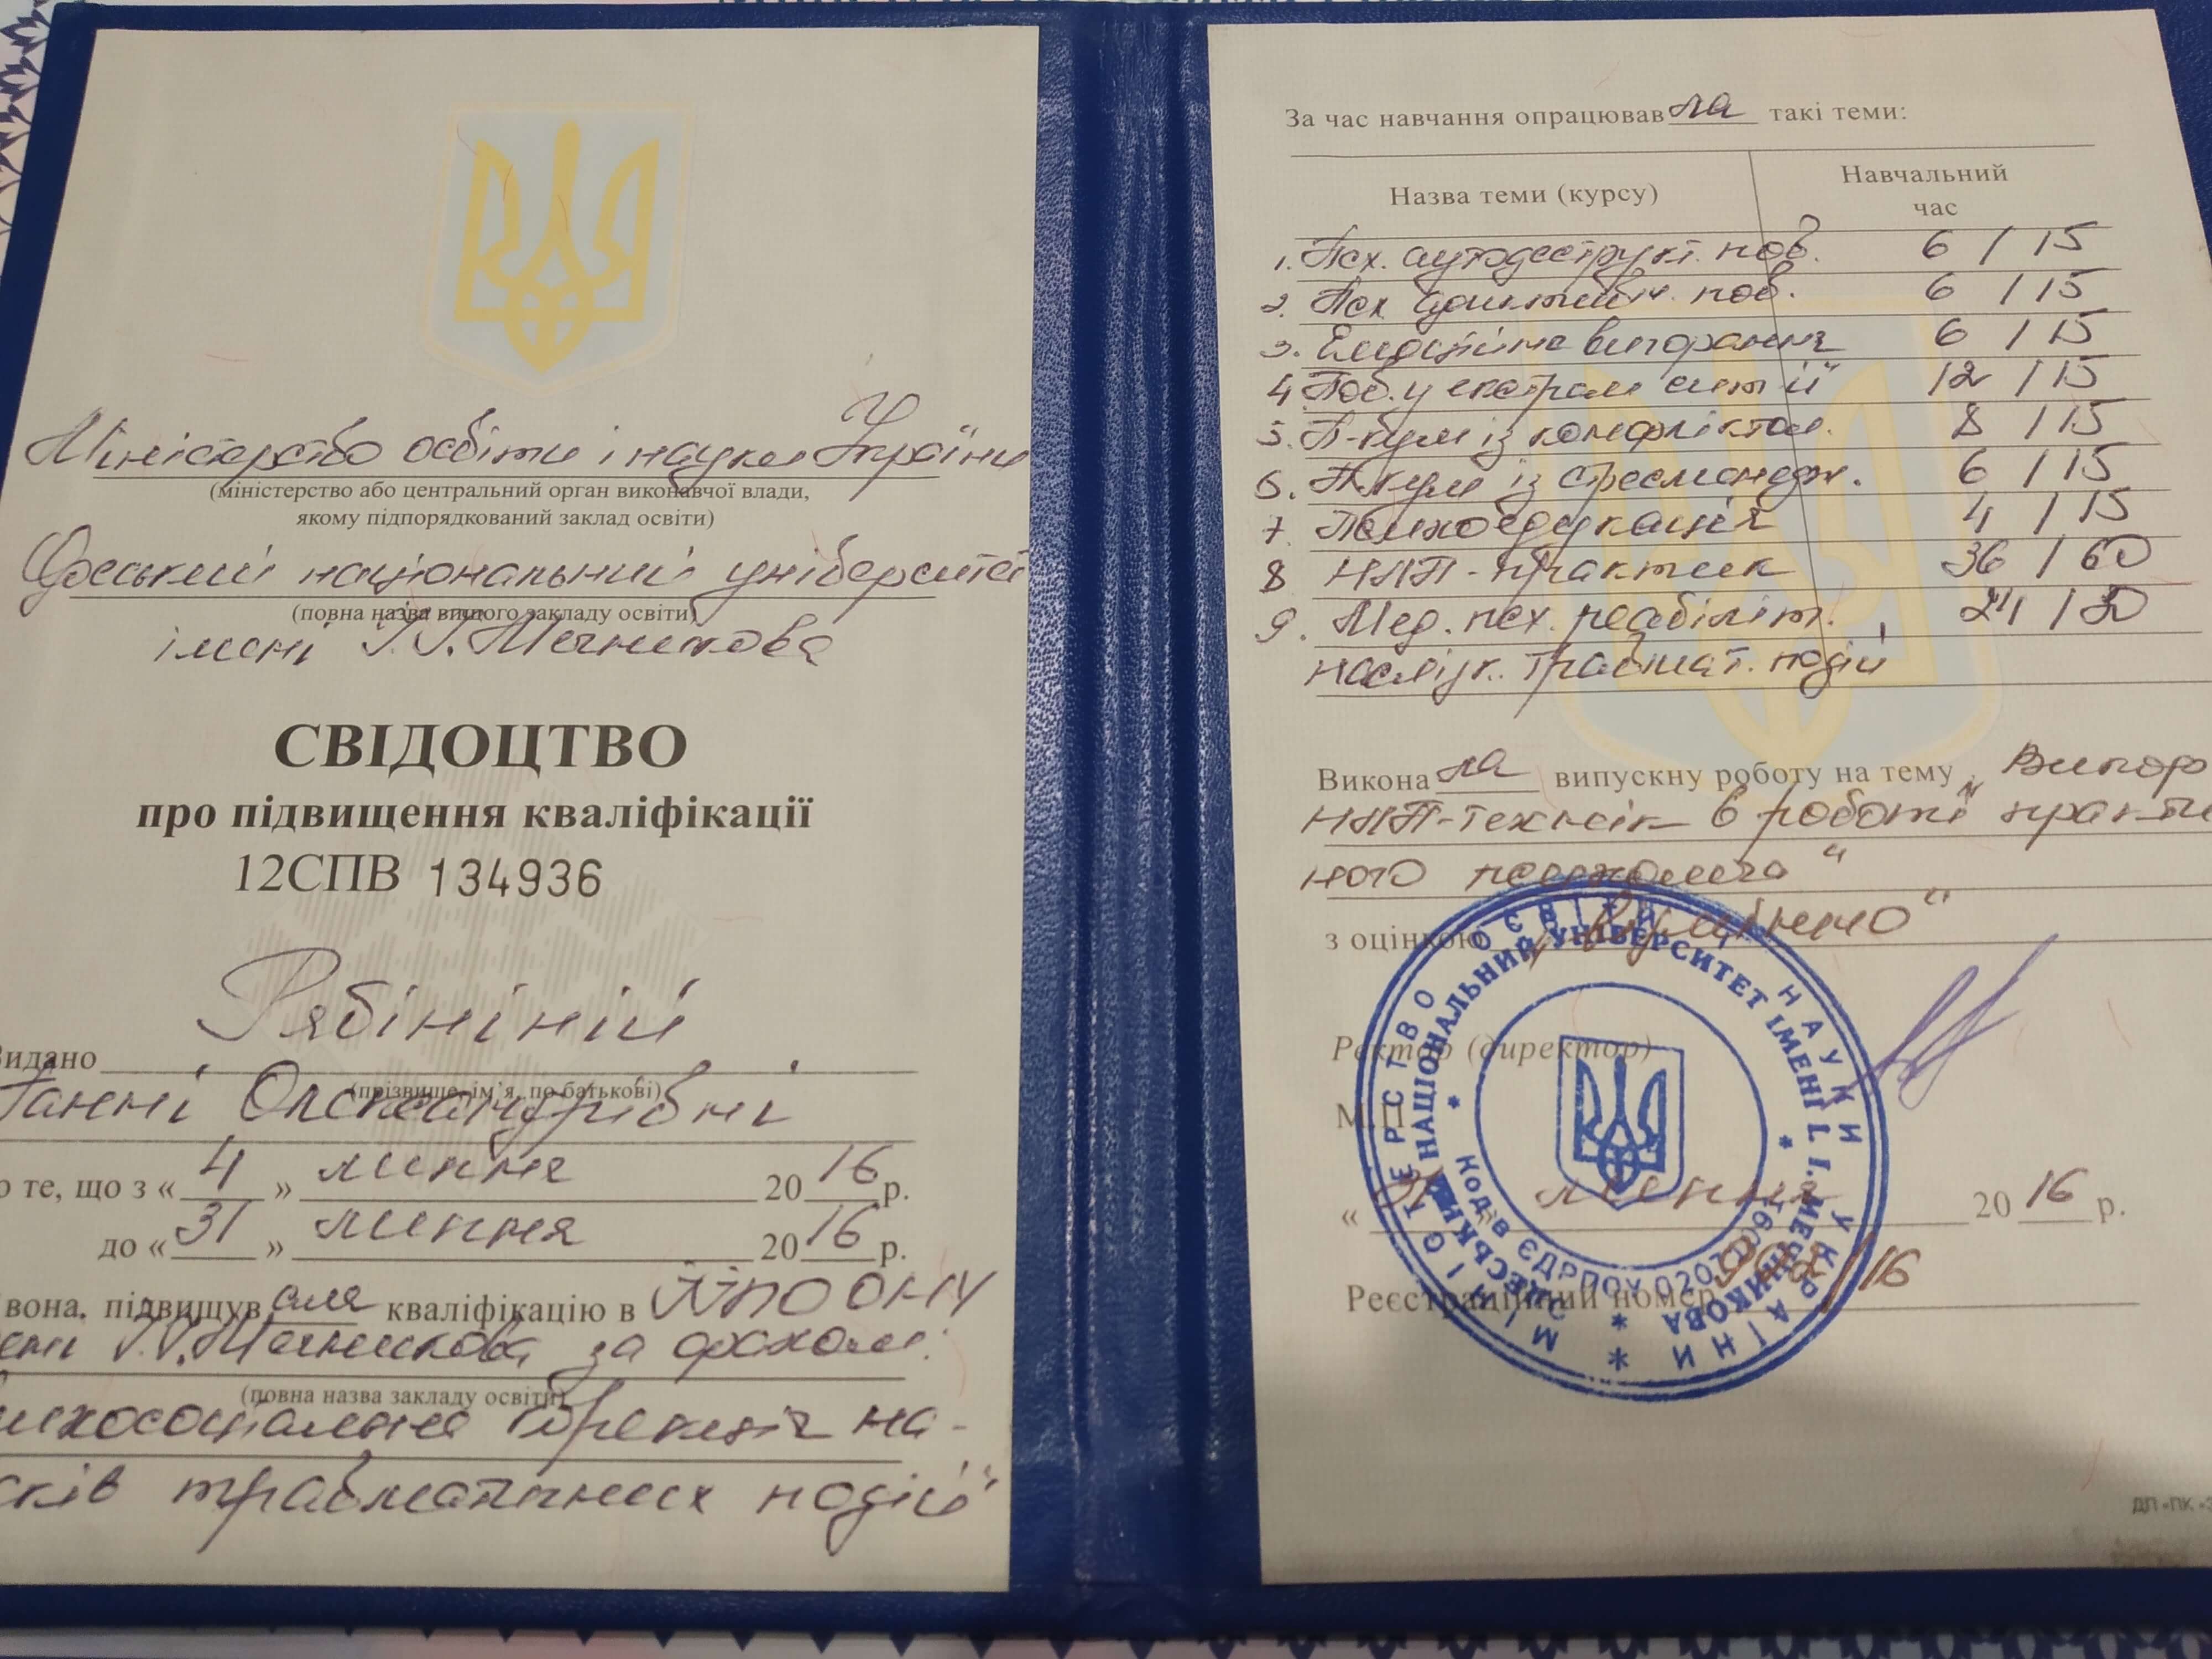 Міністерство освіти і науки України
(міністерство або центральний орган виконавчої влади,
якому підпорядкований заклад освіти)
Одеський національний університет
(повна назва вищого закладу освіти)
імені І.І. Мечникова
СВІДОЦТВО
про підвищення кваліфікації
12СПВ 134936
Рябініній
Видано
(прізвище, ім’я, по батькові)
Ганні Олександрівні
о те, що з « 4 » липня 2016 р.
до « 31 » липня 2016 р.
вона, підвищувала кваліфікацію в ІІПО ОНУ
І.І. Мечникова за фахом:
(повна назва закладу освіти)
ихосоціальна корекція на-
сків травматичних подій"
За час навчання опрацювавла такі теми:
Назва теми (курсу)
Навчальний
час
1. Псх. аутодеструкт. пов. 6 / 15
2. Псх. адитивн. пов. 6 / 15
3. Емоційне вигорання 6 / 15
4 Пов. у екстрем сит ії 12 / 15
5. П-кум із конфліктол. 8 / 15
6. П-кум із стресменедж. 6 / 15
7 Психоедукація 4 / 15
8 НЛП-практик 36 / 60
9. Мед. псх. реабіліт. 24 / 30
наслідк. травмат. подій
Викона ла випускну роботу на тему „Викор
НЛП-технік в роботі практи
ного психолога"
з оцінкою „Відмінно"
Ректор (директор)
М.П.
« 31 » липня 2016 р.
Реєстраційний номер /16
МІНІСТЕРСТВО ОСВІТИ І НАУКИ УКРАЇНИ
ОДЕСЬКИЙ НАЦІОНАЛЬНИЙ УНІВЕРСИТЕТ ІМЕНІ І. І. МЕЧНИКОВА
Код в ЄДРПОУ
ДП «ПК «З